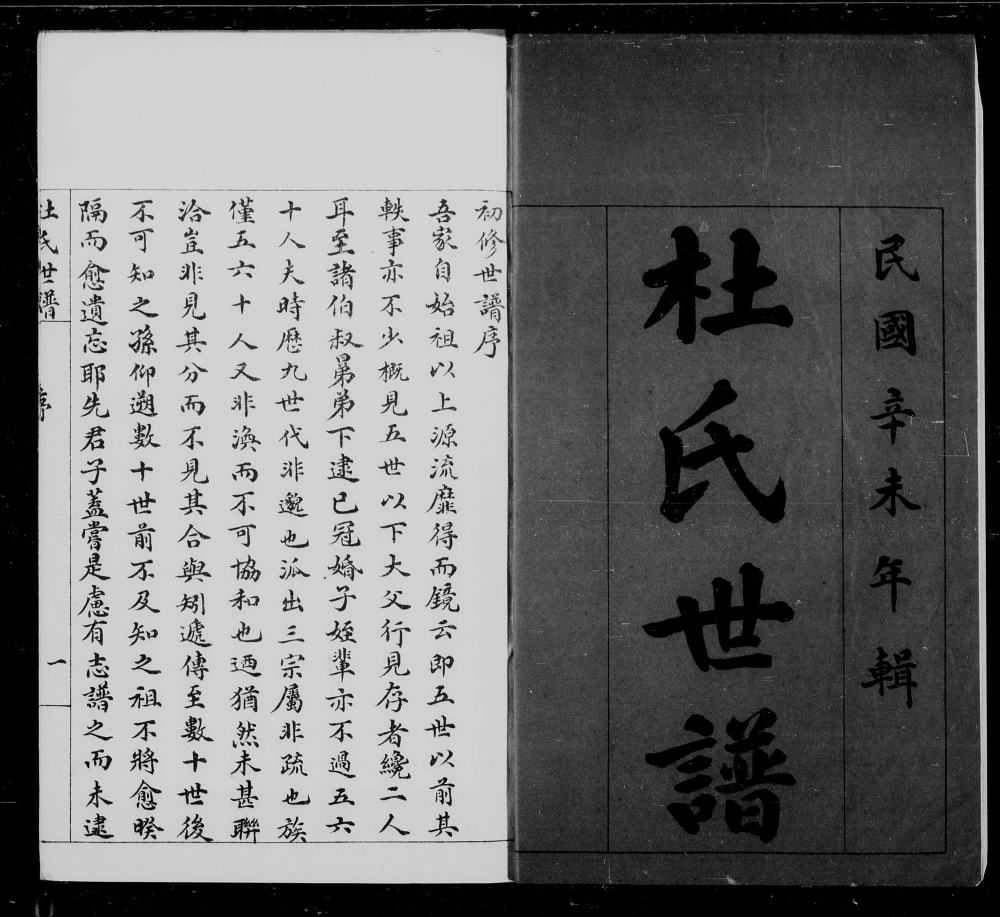 民國辛未年輯
杜氏世譜
初修世譜序
吾家自始祖以上源流靡得而鏡云即五世以前其
軼事亦不少概見五世以下大父行見存者纔二人
耳至諸伯叔暴弟下逮已冠婚子姪輩亦不過五六
十人夫時歷九世代非邈也派出三宗屬非疏也族
僅五六十人又非渙而不可協和也迺猶然未甚聯
洽豈非見其分而不見其合與矧遞傳至數十世後
不可知之孫仰遡數十世前不及知之祖不將愈暌
隔而愈遺忘耶先君子蓋嘗是慮有志譜之而未逮
杜氏世譜
序
一